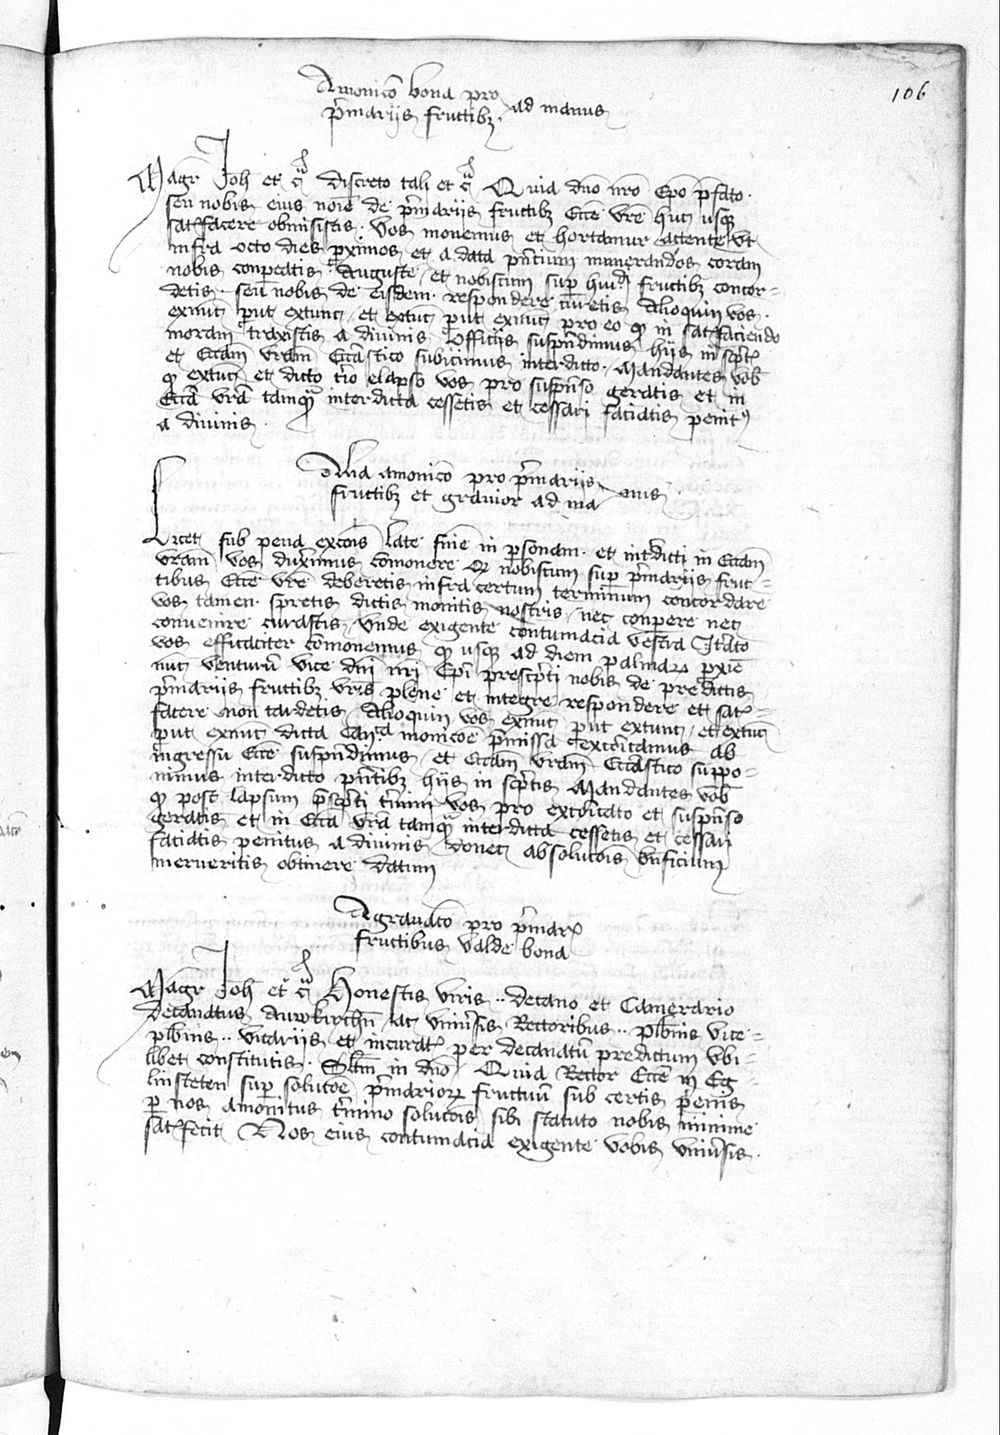 106
Amonicō bona pro
p̄mariis fructibꝫ ad manus
Magr̄ Joh̄ et c̄ discreto tali et c̄ Quia dn̄o nr̄o Ep̄o p̄fato
seu nobis eius noīe de p̄mariis fructibꝫ Ecc̄e vr̄e huc usqꝫ
satisfacere obmisistis vos monemus et hortamur attente vt
infra octo dies p̄ximos et a data pn̄tium numerandos coram
nobis conpeatis Auguste et nobiscum sup̄ hui᾽ fructibꝫ concor-
detis seu nobis de eisdem respondere curetis Alioquin vos
exnūc put extunc et extūc put exnūc pro eo qꝫ in satisfaciendo
moram traxistis a divinis officiis suspn̄dimus hiis in script̄
et Ecc̄am vr̄am Ecc̄astico subicimus interdicto Mandantes vob̄
qꝫ extūc et dicto t̄io elapso vos pro suspn̄so geratis et in
Ecc̄a vr̄a tamqꝫ interdicta cessetis et cessari faciatis penit᾽
a divinis
Alia amonicō pro p̄mariis
fructibꝫ et gravior ad manus
Licet sub pena exc̄ois late sn̄ie in p̄sonam et int̄dicti in Ecc̄am
vr̄am vos duximus cōmonere qꝫ nobiscum sup̄ p̄mariis fruc-
tibus Ecc̄e vr̄e deberetis infra certum terminum concordare
vos tamen spretis dictis monitis nostris nec conpere nec
convenire curastis vnde exigente contumacia vestra Itato
vos efficaciter cōmonemus qꝫ usqꝫ ad diem palmaꝝ pxīe
nūc venturū vice dn̄i nr̄i Ep̄i prescp̄ti nobis de predictis
p̄mariis fructibꝫ vr̄is plene et integre respondere et satis-
facere non tardetis Alioquin vos exnūc put extunc et extūc
put exnūc dicta Can̄ca monicōe p̄missa excōicamus ab
ingressu Ecc̄e suspn̄dimus et Ecc̄am vr̄am Ecc̄astico suppo-
nimus interdicto pn̄tibꝫ hiis in scp̄tis Mandantes vob̄
qꝫ post lapsum p̄scp̄ti t̄mini vos pro excōicato et suspn̄so
geratis et in Ecc̄a vr̄a tamqꝫ interdicta cessetis et cessari
faciatis penitus a divinis donec absolucōis bn̄ficium
merueritis obtinere datum
Agravacō pro p̄mar̄
fructibus valde bona
Magr̄ Joh̄ et c̄ Honestis viris decano et Camerario
decanatus Auwkirchn̄ ac vniūsis Rectoribus plb̄nis vice-
plb̄nis vicariis et incurat̄ per decanatū predictum vbi-
libet constitutis Sltm̄ in dn̄o Quia Rector Ecc̄e in Eg-
linsteten sup̄ solucōe p̄marioꝝ fructuū sub certis penis
p̄ nos amonitus t̄mino solucōis sibi statuto nobis minime
satisfecit Nos eius contumacia exigente vobis vniūsis